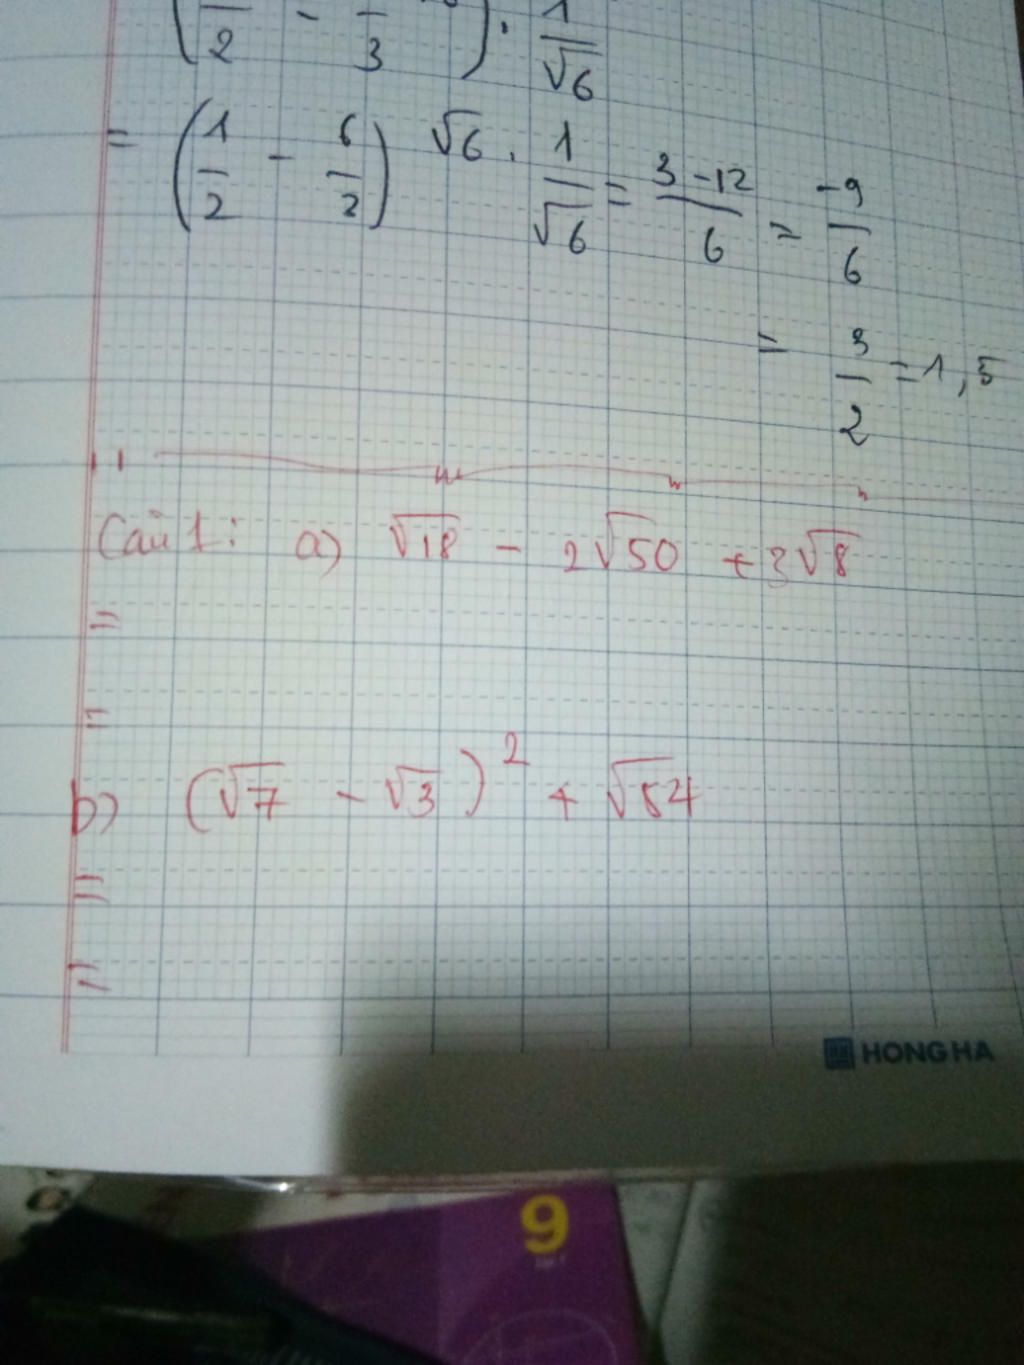 ( /2 - /3 ) . 1/√6
= (1/2 - 6/2) √6 . 1/√6 = 3-12/6 = -9/6
= 3/2 = 1,5
Câu 1: a) √18 - 2√50 + 3√8
=
=
b) (√7 - √3)² + √54
=
=
HONG HA
9